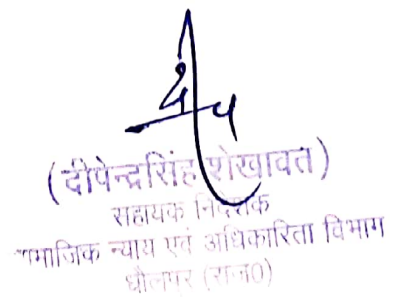 (दीपेन्द्रसिंह शेखावत)
सहायक निदेशक
सामाजिक न्याय एवं अधिकारिता विभाग
धौलपुर (राज0)